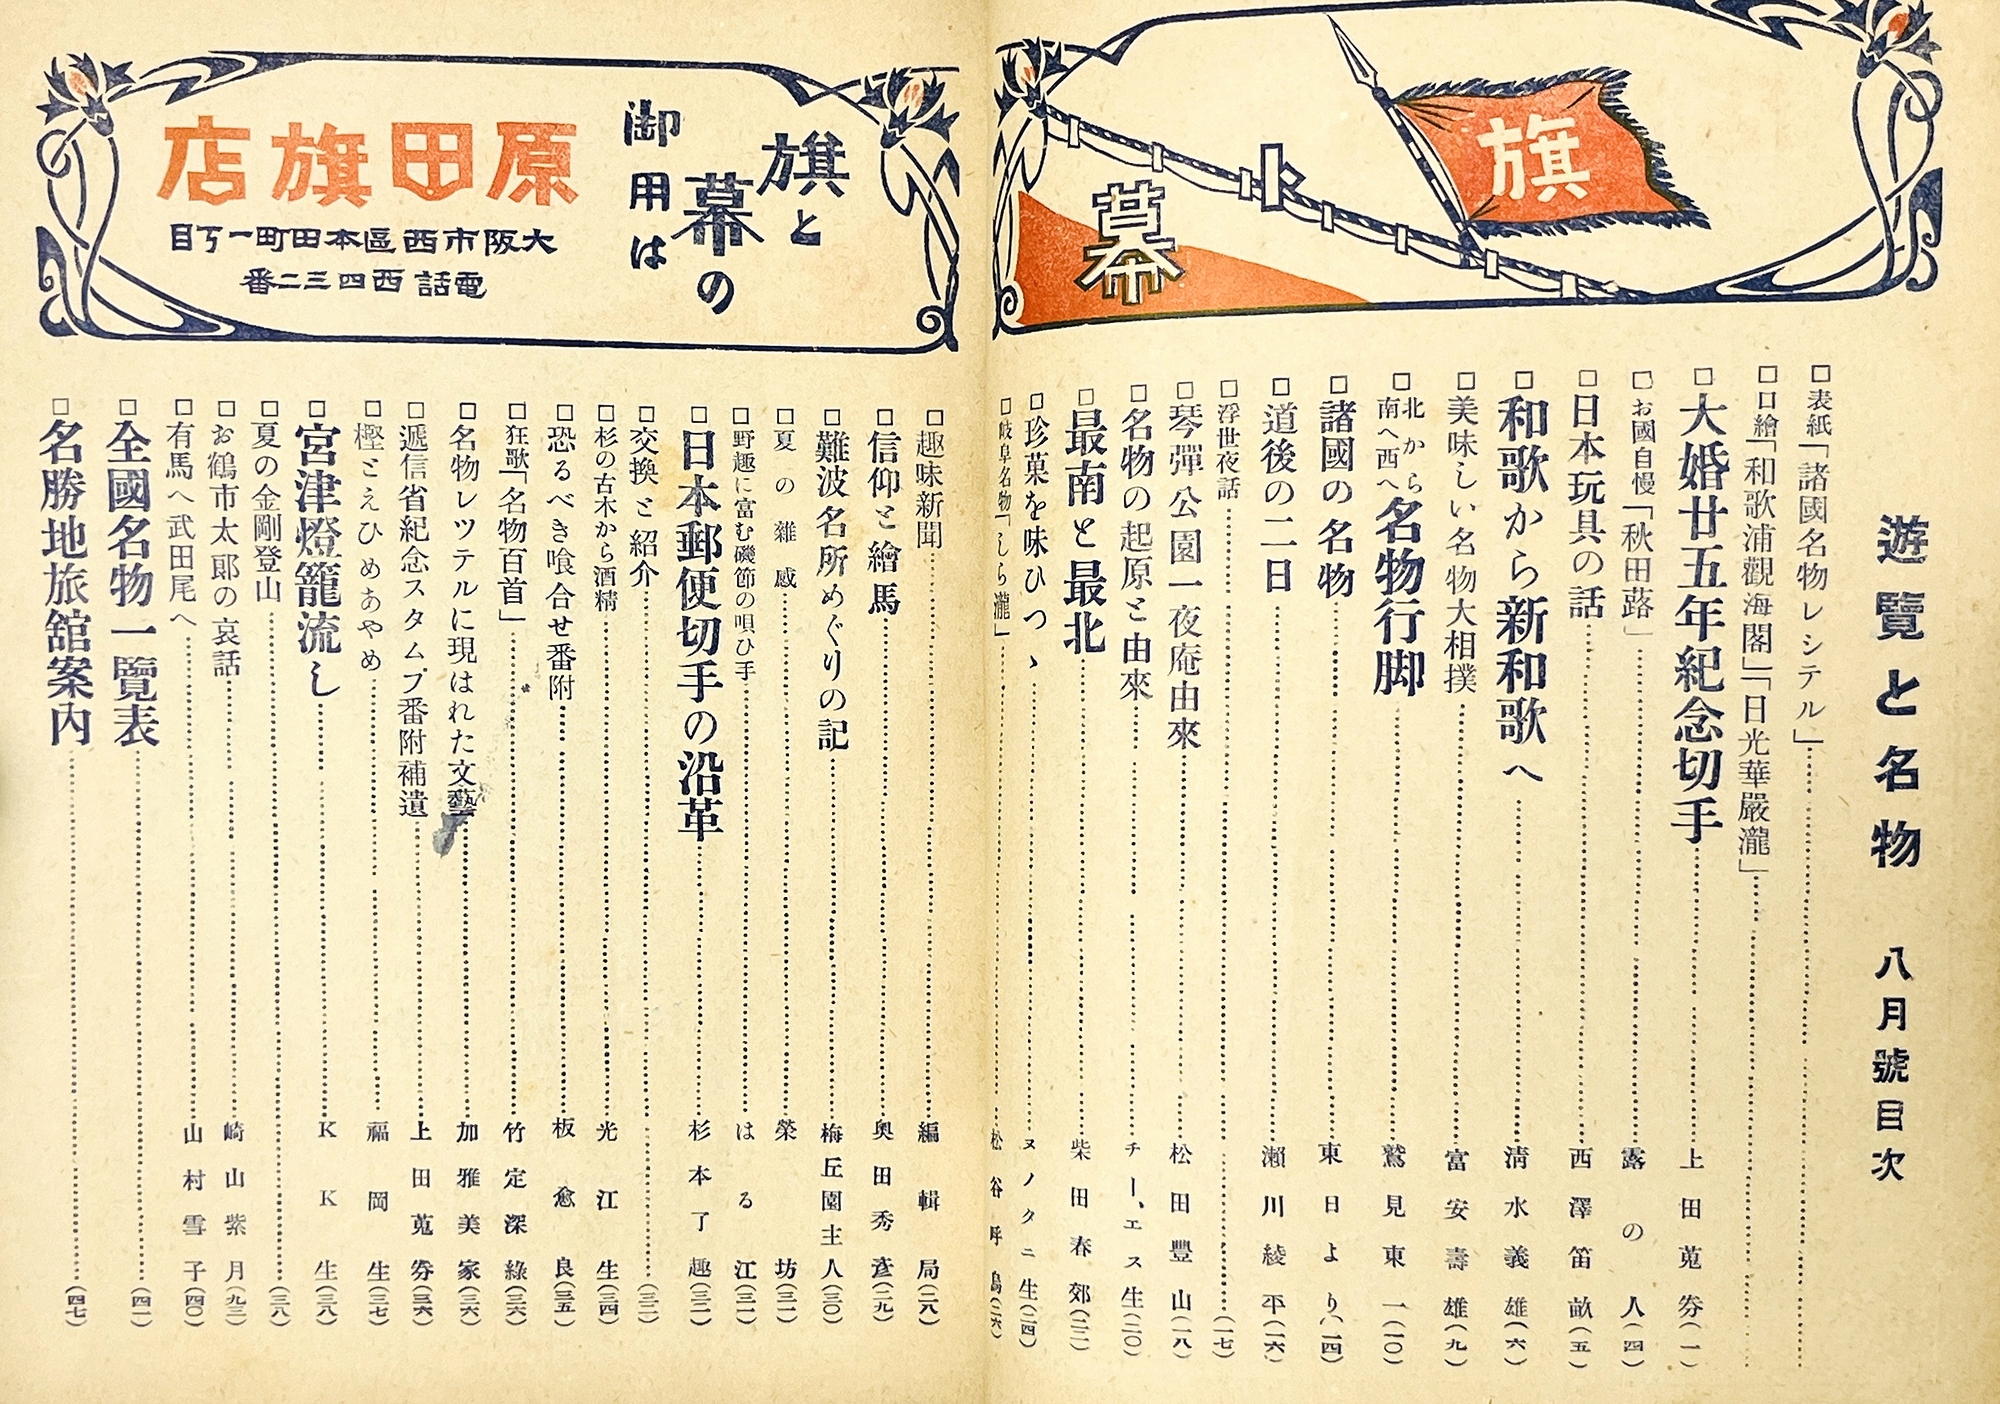 旗
と
幕
遊覽と名物 八月號目次
□表紙「諸國名物レシテル」
□口繪「和歌浦觀海閣」「日光華嚴瀧」
□大婚廿五年紀念切手 上田蒐券(一)
□お國自慢「秋田蕗」 露の人(四)
□日本玩具の話 西澤笛畝(五)
□和歌から新和歌へ 淸水義雄(六)
□美味しい名物大相撲 富安壽雄(九)
□北から南へ西へ名物行脚 鷲見東一(一〇)
□諸國の名物 東日より(一四)
□道後の二日 瀨川綾平(一六)
□浮世夜話 (一七)
□琴彈公園一夜庵由來 松田豐山(一八)
□名物の起原と由來 チー、エス生(二〇)
□最南と最北 柴田春郊(二二)
□珍菓を味ひつゝ ヌノタニ生(二四)
□岐阜名物「しら瀧」 松谷呼鳥(二六)
旗と
幕の
御用は
原田旗店
大阪市西區本田町一丁目
電話西四三二番
□趣味新聞 編輯局(二八)
□信仰と繪馬 奧田秀彥(二九)
□難波名所めぐりの記 梅丘園主人(三〇)
□夏の雜感 榮坊(三一)
□野趣に富む磯節の唄ひ手 はる江(三一)
□日本郵便切手の沿革 杉本了趣(三二)
□交換と紹介 (三二)
□杉の古木から酒精 光江生(三四)
□恐るべき喰合せ番附 板愈良(三五)
□狂歌「名物百首」 竹定深綠(三六)
□名物レツテルに現はれた文藝 加雅美家(三六)
□遞信省紀念スタムプ番附補遺 上田蒐券(三六)
□樫とえひめあやめ 福岡生(三七)
□宮津燈籠流し KK生(三八)
□夏の金剛登山 (三八)
□お鶴市太郞の哀話 崎山紫月(九三)
□有馬へ武田尾へ 山村雪子(四〇)
□全國名物一覽表 (四一)
□名勝地旅舘案內 (四七)